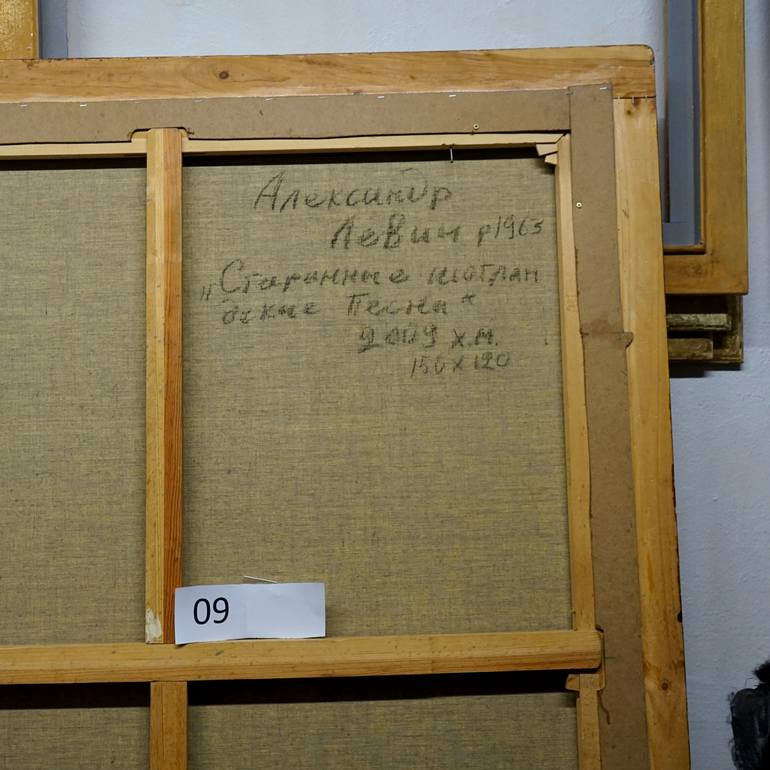 Александр
Левич р1963
„Старинные шотлан
дские Песни"
2009 х.м.
150х120
09